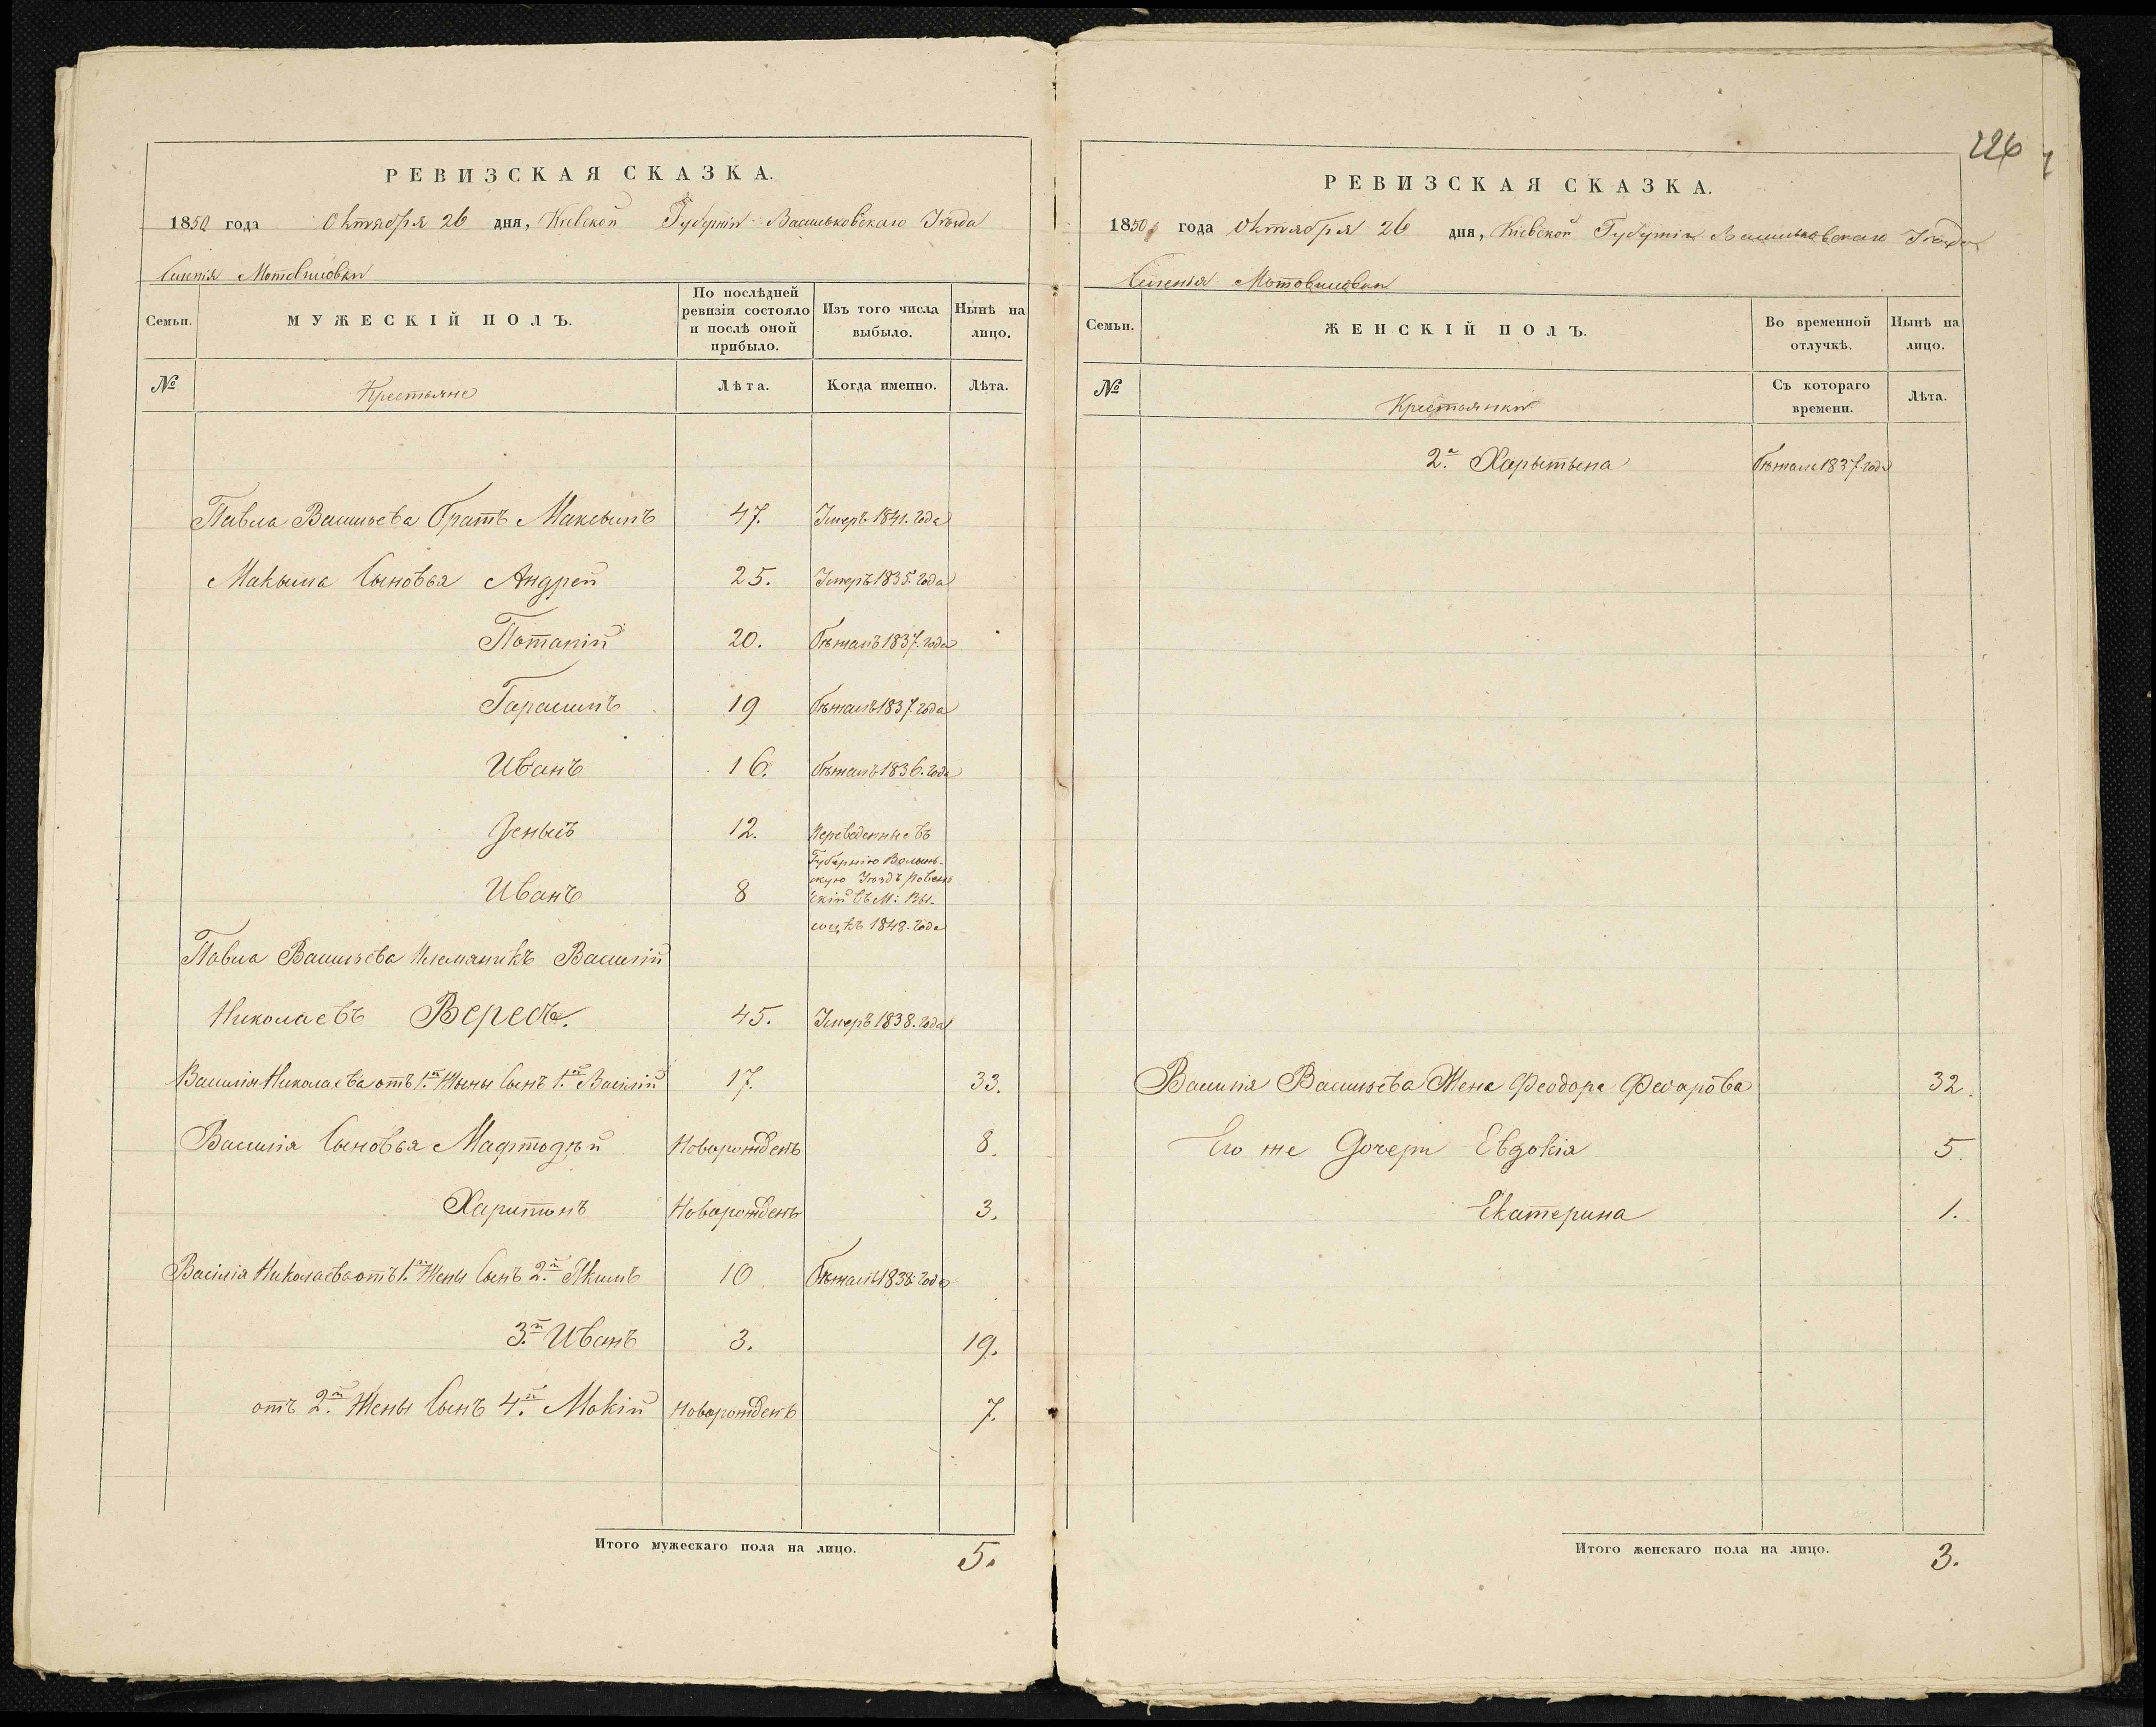 РЕВИЗСКАЯ СКАЗКА.
1850 года Октября 26 дня, Кіевской Губерніи Васильковскаго Уѣзда
Селенія Мотовиловки
Семьи. МУЖЕСКІЙ ПОЛЪ. По послѣдней ревизіи состояло и послѣ оной прибыло. Изъ того числа выбыло. Нынѣ на лицо.
№ Крестьяне Лѣта. Когда именно. Лѣта.
Павла Васильева братъ Максымъ 47. Умеръ 1841. года
Макыма Сыновья Андрей 25. Умеръ 1835. года
Потапій 20. бѣжалъ 1837. года
Гарасимъ 19 бѣжалъ 1837. года
Иванъ 16. бѣжалъ 1836. года
Денысъ 12. Переведенные въ
Губернію Волынь-
скую Уѣздъ Ровен
Иванъ 8 скій въ М: Вы-
соцкъ 1848. года
Павла Васильева племяникъ Василій
Николаевъ Вересъ. 45. Умеръ 1838. года
Василія Николаева отъ 1.й Жены Сынъ 1.й Василій 17. 33.
Василія Сыновья Мафтодѣй Новорожденъ 8.
Харитонъ Новорожденъ 3.
Василія Николаева отъ 1.й Жены Сынъ 2.й Якимъ 10 Бѣжалъ 1838. года
3.й Иванъ 3. 19.
отъ 2.й Жены Сынъ 4.й Мокій Новорожденъ 7.
Итого мужескаго пола на лицо. 5.
226
РЕВИЗСКАЯ СКАЗКА.
1850 года Октября 26 дня, Кіевской Губерніи Васильковскаго Уѣзда
Селенія Мотовиловки
Семьи. ЖЕНСКІЙ ПОЛЪ. Во временной отлучкѣ. Нынѣ на лицо.
№ Крестьянки Съ котораго времени. Лѣта.
2.а Харытына бѣжала 1837 года
Василія Васильева Жена Феодора Феодорова 32.
Его же Дочери Евдокія 5.
Екатерина 1.
Итого женскаго пола на лицо. 3.